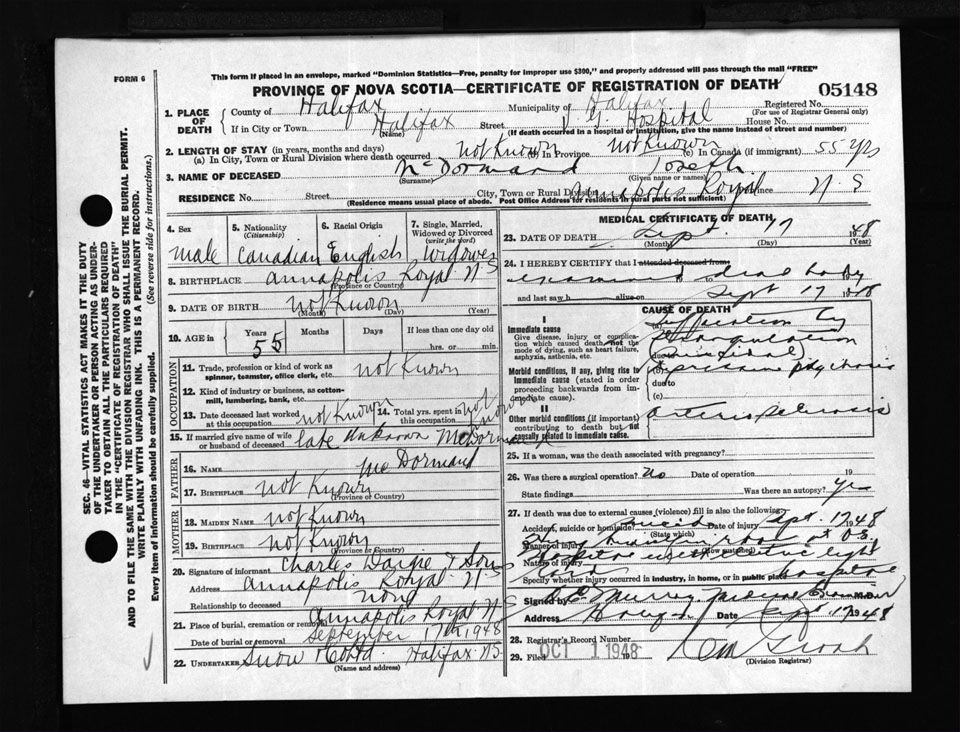 This form if placed in an envelope, marked "Dominion Statistics—Free, penalty for improper use $300," and properly addressed will pass through the mail "FREE"
FORM 6
PROVINCE OF NOVA SCOTIA—CERTIFICATE OF REGISTRATION OF DEATH
05148
1. PLACE OF DEATH
County of Halifax Municipality of Halifax Registered No.
(For use of Registrar General only)
If in City or Town Halifax Street V. G. Hospital House No.
(Name) (If death occurred in a hospital or institution, give the name instead of street and number)
2. LENGTH OF STAY (in years, months and days)
(a) In City, Town or Rural Division where death occurred not Known (b) In Province not Known (c) In Canada (if immigrant) 55 yrs
3. NAME OF DECEASED McDormand Joseph
(Surname) (Given name or names)
RESIDENCE No. Street City, Town or Rural Division Annapolis Royal Province N. S
(Residence means usual place of abode. Post Office Address for residents in rural parts not sufficient)
4. Sex
male
5. Nationality (Citizenship)
Canadian
6. Racial Origin
English
7. Single, Married, Widowed or Divorced (write the word)
Widower
8. BIRTHPLACE Annapolis Royal N S
(Province or Country)
9. DATE OF BIRTH not Known
(Month) (Day) (Year)
10. AGE in Years Months Days If less than one day old
55 hrs. or min.
OCCUPATION
11. Trade, profession or kind of work as spinner, teamster, office clerk, etc. not Known
12. Kind of industry or business, as cotton-mill, lumbering, bank, etc.
13. Date deceased last worked at this occupation not Known
14. Total yrs. spent in this occupation not Known
15. If married give name of wife or husband of deceased late Unknown McDormand
FATHER
16. NAME McDormand
17. BIRTHPLACE not Known
(Province or Country)
MOTHER
18. MAIDEN NAME not Known
19. BIRTHPLACE not Known
(Province or Country)
20. Signature of informant Charles Dargie & Sons
Address Annapolis Royal N. S
Relationship to deceased none
21. Place of burial, cremation or removal Annapolis Royal N S
Date of burial or removal September 17th 1948
22. UNDERTAKER Snow & Co Ltd. Halifax N S
(Name and address)
MEDICAL CERTIFICATE OF DEATH
23. DATE OF DEATH Sept. 17 1948
(Month) (Day) (Year)
24. I HEREBY CERTIFY that I attended deceased from
examined dead body
and last saw h alive on Sept 17 1948
CAUSE OF DEATH
I
Immediate cause
Give disease, injury or complication which caused death, not the mode of dying, such as heart failure, asphyxia, asthenia, etc.
(a) Suffocation by
strangulation
(suicidal)
due to
Morbid conditions, if any, giving rise to immediate cause (stated in order proceeding backwards from immediate cause).
(b) psychosis
due to
(c)
II
Other morbid conditions (if important) contributing to death but not causally related to immediate cause.
Arteriosclerosis
25. If a woman, was the death associated with pregnancy?
26. Was there a surgical operation? No Date of operation 19
State findings Was there an autopsy? Yes
27. If death was due to external causes (violence) fill in also the following:
Accident, suicide or homicide Suicide Date of injury Sept. 17 1948
(State which)
Manner of injury Hung
(How sustained)
Nature of injury electric light
cord
Specify whether injury occurred in industry, in home, or in public place hospital
Signed by Murray Medical Examiner M.D.
Address Date Sept 17 1948
28. Registrar's Record Number
29. Filed OCT 1 1948
(Division Registrar)
SEC. 46—VITAL STATISTICS ACT MAKES IT THE DUTY
OF THE UNDERTAKER OR PERSON ACTING AS UNDERTAKER
TO OBTAIN ALL THE PARTICULARS REQUIRED
IN THE "CERTIFICATE OF REGISTRATION OF DEATH"
AND TO FILE THE SAME WITH THE DIVISION REGISTRAR WHO SHALL ISSUE THE BURIAL PERMIT.
WRITE PLAINLY WITH UNFADING INK. THIS IS A PERMANENT RECORD.
Every item of information should be carefully supplied. (See reverse side for instructions.)